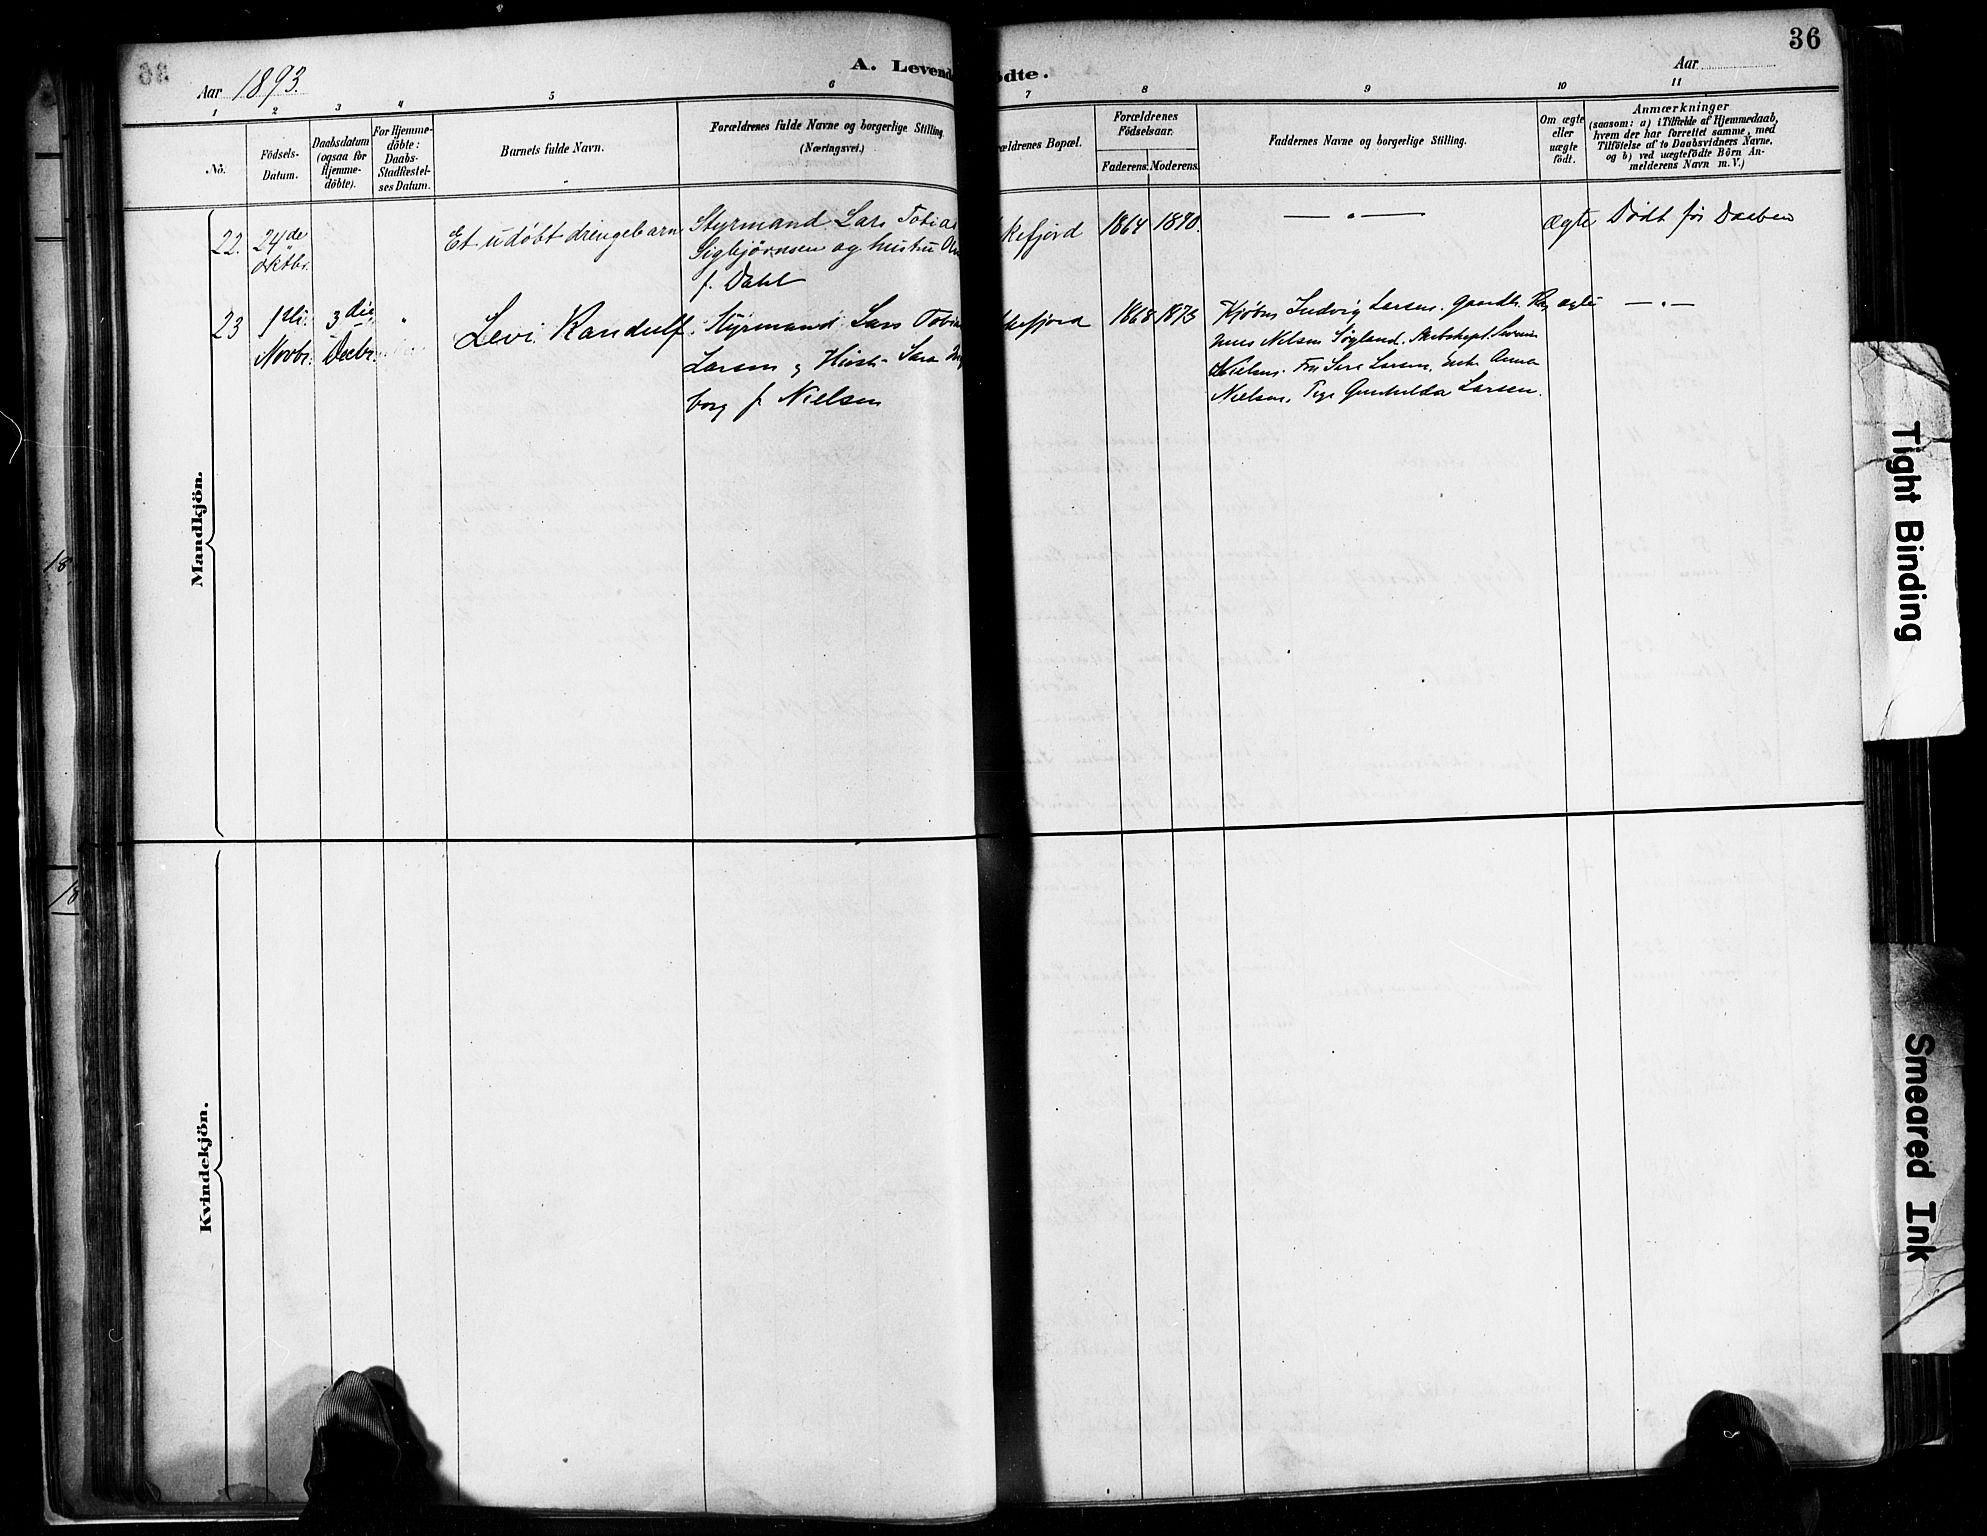 36
Aar 1893.
A. Levende
ødte.
Aar
1 2 3 4 5 6 7 8 9 10 11
No.
Födsels-
Datum.
Daabsdatum
(ogsaa for
Hjemme-
döbte).
For Hjemme-
döbte:
Daabs-
Stadfæstel-
ses Datum.
Barnets fulde Navn.
Forældrenes fulde Navne og borgerlige Stilling.
(Næringsvei.)
rældrenes Bopæl.
Forældrenes
Födselsaar.
Faderens. Moderens.
Faddernes Navne og borgerlige Stilling.
Om ægte
eller
uægte
födt.
Anmærkninger
(saasom: a) i Tilfælde af Hjemmedaab,
hvem der har forrettet samme, med
Tilföielse af to Daabsvidners Navne,
og b) ved uægtefödte Börn An-
melderens Navn m. V.)
Mandkjön.
22. 24de Et udöbt drengebarn Styrmand Lars Tobias kefjord 1864 1870. — " — Ægte Dödt før Daaben
oktbr. Sigbjörnsen og hustru
f. Dahl
23 1ste 3die " Levi Randulf Styrmand Lars Tobias kefjord 1868 1873 Ludvig Larsen. ægte — " —
Novbr. Decbr. Larsen Sara
Nielsen
borg f. Nielsen
Larsen, Anna
Nielsen, Pige Gunhilda Larsen.
Kvindekjön.
18
18
Tight Binding
Smeared Ink